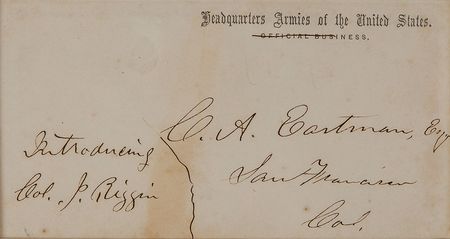 Headquarters Armies of the United States.
OFFICIAL BUSINESS,
C. A. Eastman, Esq
San Francisco
Cal.
Introducing
Col. J. Riggin